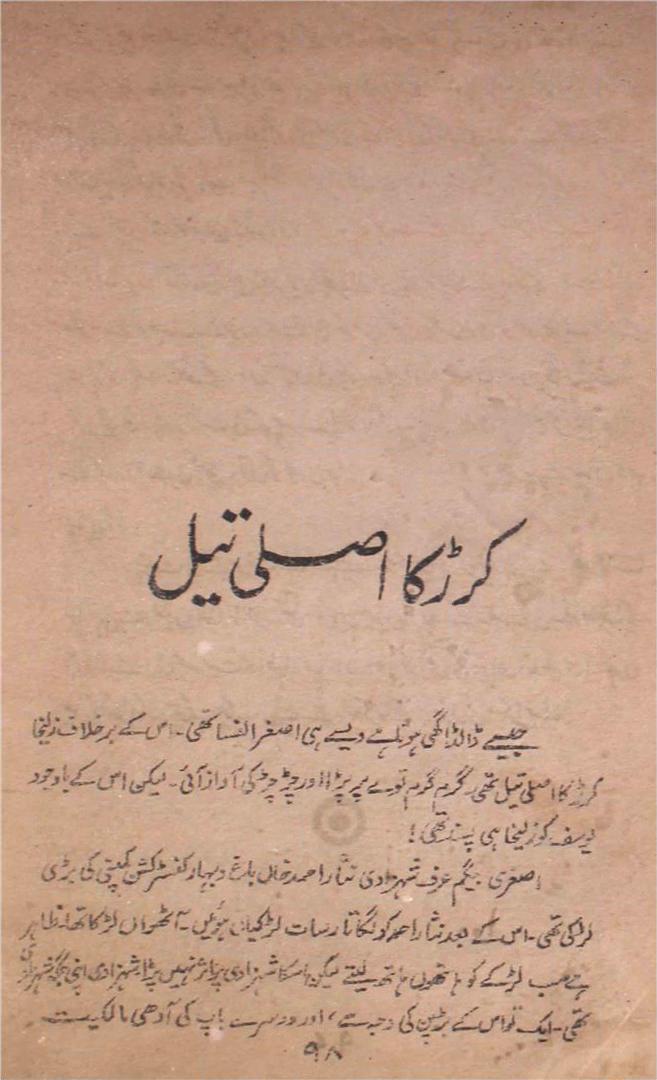 کرڑ کا اصلی تیل
جیسے ڈالڈا گھی ہوتا ہے ویسے ہی اصغر النسا تھی۔ اس کے برخلاف زلیخا
کرڑ کا اصلی تیل تھی۔ گرم گرم توے پر پڑا اور چڑ چڑ کی آواز آئی۔ لیکن اس کے باوجود
یوسف کو زلیخا ہی پسند تھی!
اصغری بیگم عرف شہزادی نثار احمد خاں باغ و بہار کنسٹرکشن کمپنی کی بڑی
لڑکی تھی۔ اس کے بعد نثار احمد کو لگاتار سات لڑکیاں ہوئیں۔ آٹھواں لڑکا تھا۔ ظاہر
ہے سب لڑکے کو ہاتھوں ہاتھ لیتے لیکن اسکا شہزادی پر اثر نہیں پڑا شہزادی اپنی جگہ شہزادی
تھی۔ ایک تو اس کے بڑپن کی وجہ سے، اور دوسرے باپ کی آدھی مالکیت
۹۸